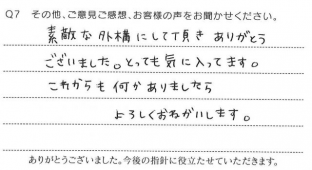 Q7 その他、ご意見ご感想、お客様の声をお聞かせください。
素敵な外構にして頂き ありがとう
ございました。とっても気に入ってます。
これからも何かありましたら
よろしくおねがいします。
ありがとうございました。今後の指針に役立たせていただきます。